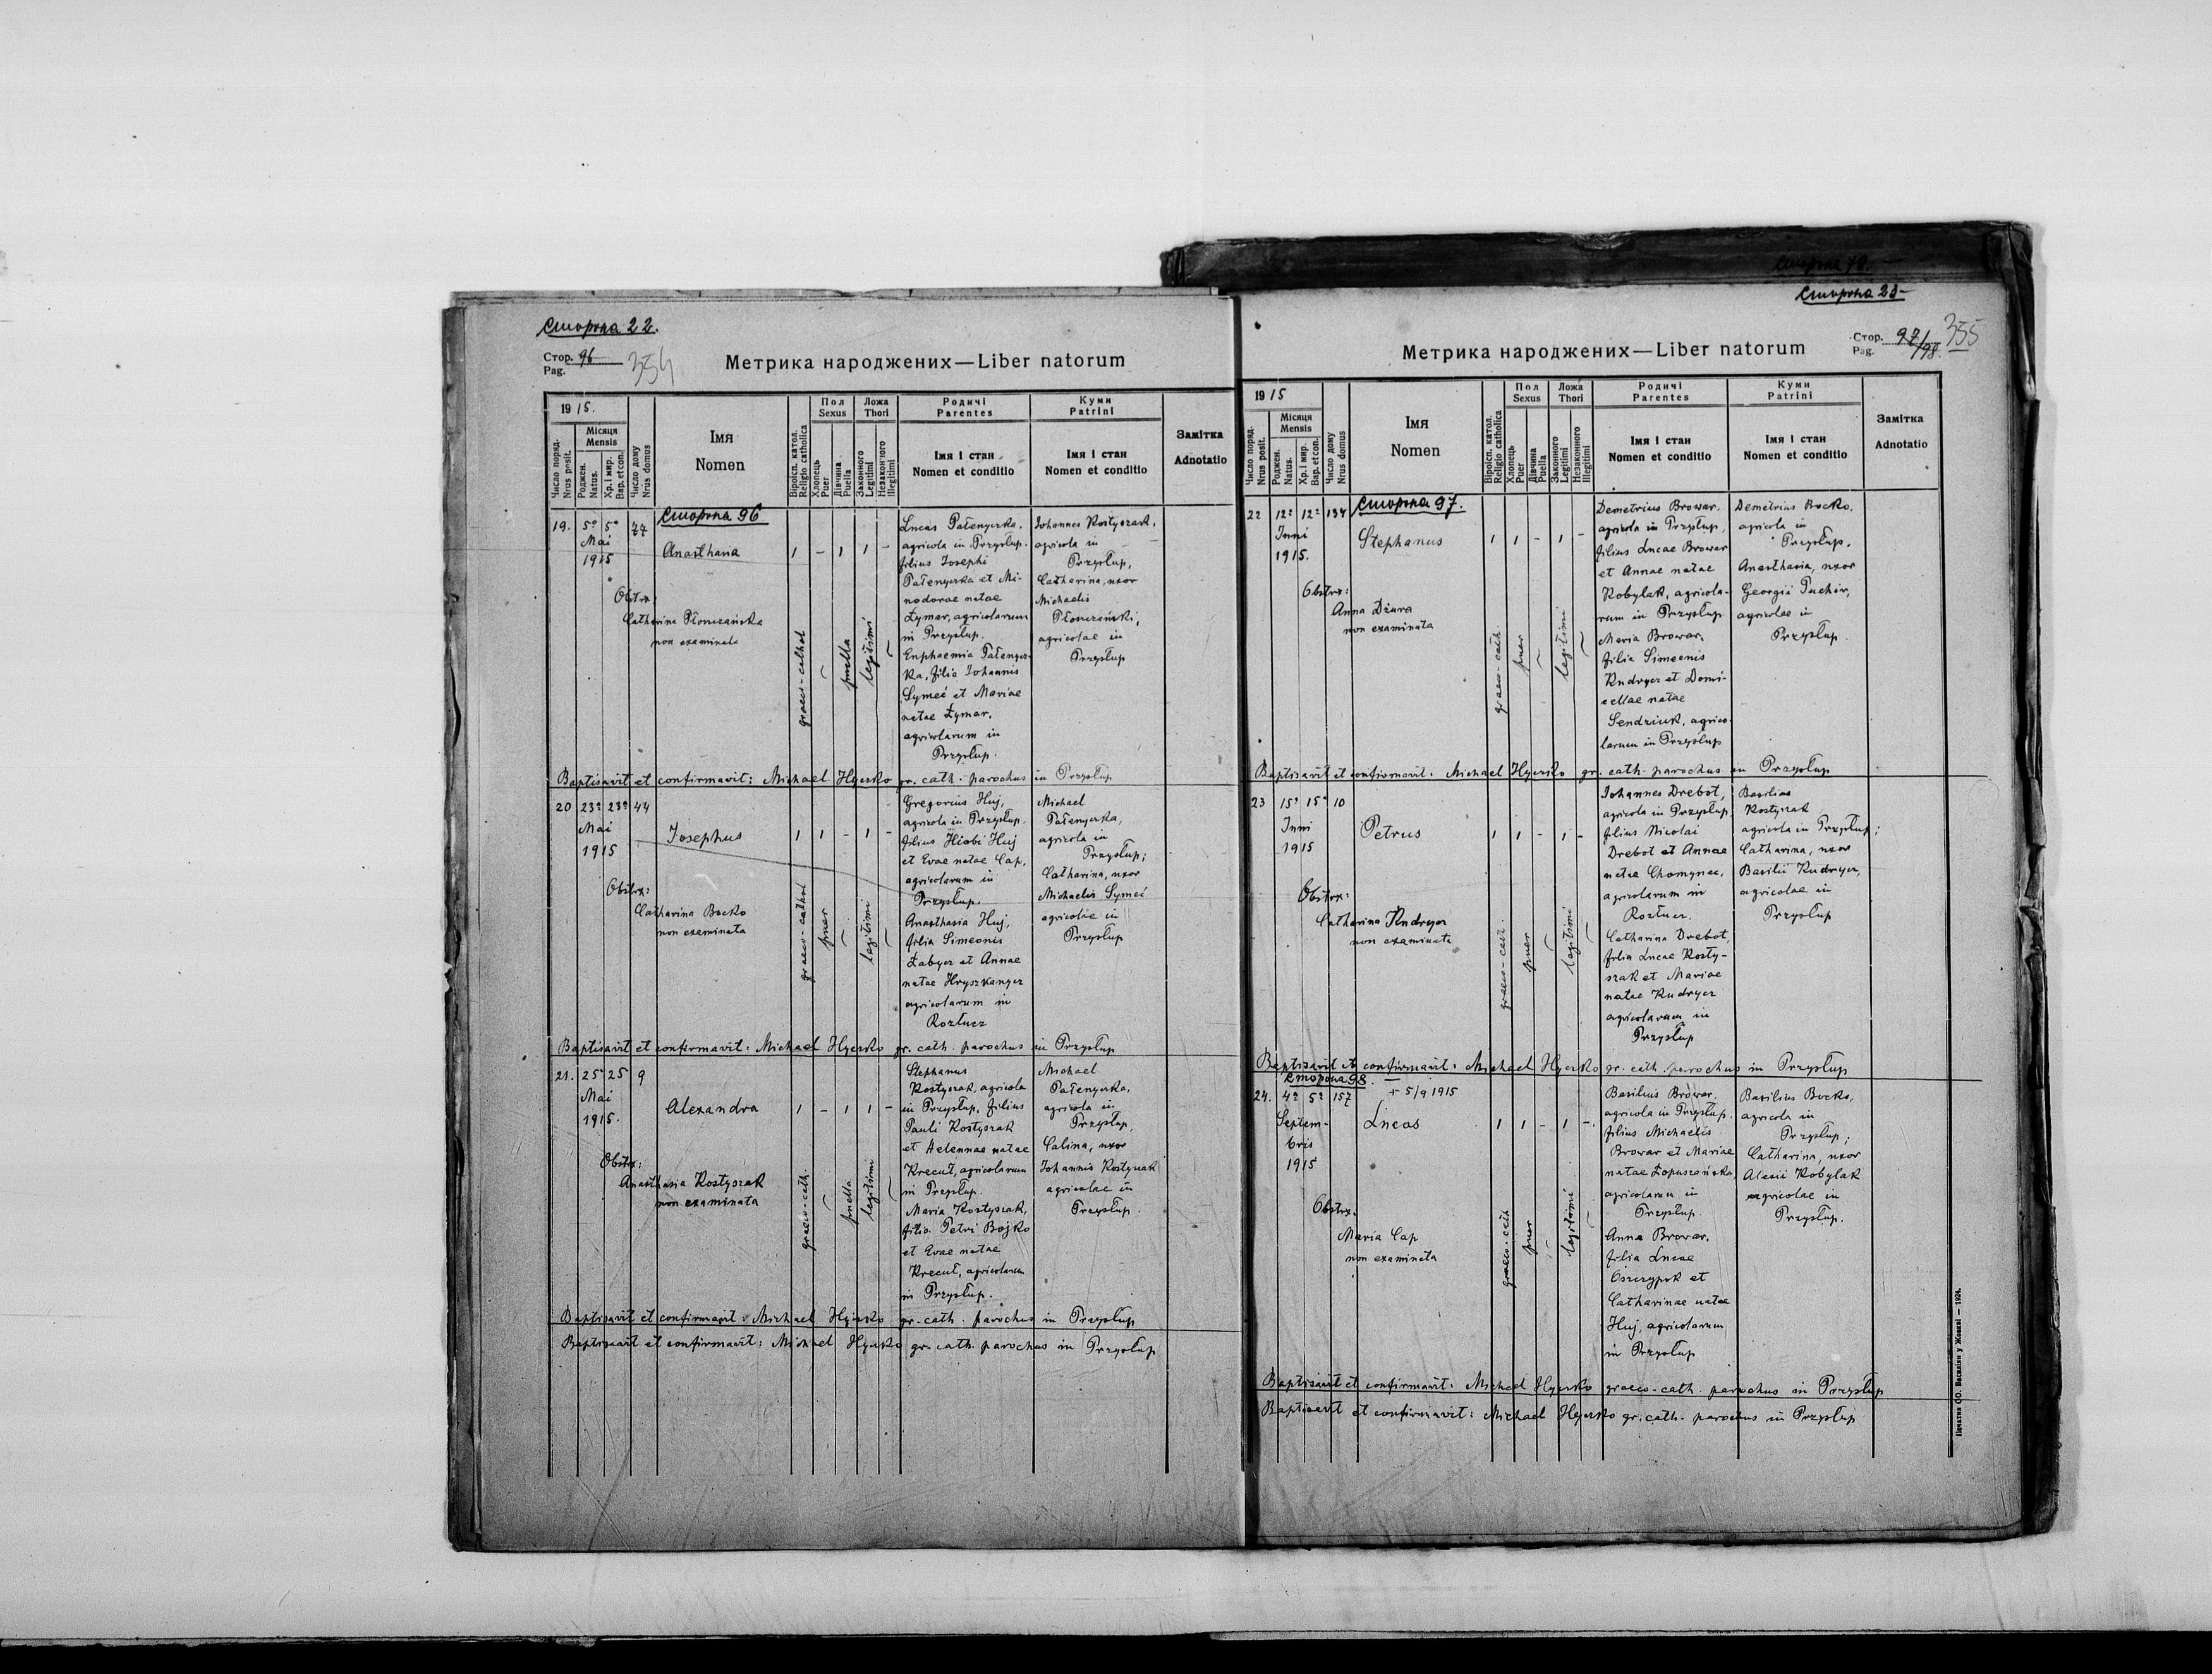 Сторона 22.
Стор. 96
Pag.
354
Метрика народжених—Liber natorum
19 15.
Число поряд.
Nrus posit.
Місяця
Mensis
Роджен.
Natus.
Хр. і мир.
Bap. et con.
Число дому
Nrus domus
Імя
Nomen
Віроісп. катол.
Religio catholica
Пол
Sexus
Хлопець
Puer
Дівчина
Puella
Ложа
Thori
Законного
Legitimi
Незаконного
Illegitimi
Родичі
Parentes
Імя і стан
Nomen et conditio
Куми
Patrini
Імя і стан
Nomen et conditio
Замітка
Adnotatio
Сторона 96
19. 5° 5° 77
Mai
1915
Anasthasia
1 - 1 1 -
Obstrx:
Catherina Płonczańska
non examinata
graeco-cathol
puella
legitimi
Lucas Pałenyczka,
agricola in Przysłup.
filius Josephi
Pałenyczka et Mi-
nodorae natae
Żymar, agricolarum
in Przysłup.
Euphaemia Pałenycz-
ka, filia Johannis
Symeć et Mariae
natae Żymar,
agricolarum in
Przysłup.
Johannes Kostyszak,
agricola in
Przysłup,
Catharina, uxor
Michaelis
Płonczański,
agricolae in
Przysłup
Baptisavit et confirmavit: Michael Hyczko gr. cath. parochus in Przysłup
20 23° 23° 44
Mai
1915
Josephus
1 1 - 1 -
Obstrx:
Catharina Bocko
non examinata
graeco-cathol
puer
legitimi
Gregorius Huj,
agricola in Przysłup.
filius Hiobi Huj
et Evae natae Cap,
agricolarum in
Przysłup.
Anasthasia Huj,
filia Simeonis
Żabycz et Annae
natae Hryszkanycz
agricolarum in
Rozłucz
Michael
Pałenyczka,
agricola in
Przysłup;
Catharina, uxor
Michaelis Symeć
agricolae in
Przysłup
Baptisavit et confirmavit: Michael Hyczko gr. cath. parochus in Przysłup
21. 25° 25 9
Mai
1915.
Alexandra
1 - 1 1 -
Obstrx:
Anasthasia Kostyszak
non examinata
graeco-cath.
puella
legitimi
Stephanus
Kostyszak, agricola
in Przysłup, filius
Pauli Kostyszak
et Helennae natae
Krecuł, agricolarum
in Przysłup.
Maria Kostyszak,
filia Petri Bojko
et Evae natae
Krecuł, agricolarum
in Przysłup.
Michael
Pałenyczka,
agricola in
Przysłup,
Calina, uxor
Johannis Kostyszak
agricolae in
Przysłup.
Baptisavit et confirmavit: Michael Hyczko gr. cath. parochus in Przysłup
Baptisavit et confirmavit: Michael Hyczko gr. cath. parochus in Przysłup
Сторона 23-
Стор. 97/98.
Pag.
355
Метрика народжених—Liber natorum
19 15
Число поряд.
Nrus posit.
Місяця
Mensis
Роджен.
Natus.
Хр. і мир.
Bap. et con.
Число дому
Nrus domus
Імя
Nomen
Віроісп. катол.
Religio catholica
Пол
Sexus
Хлопець
Puer
Дівчина
Puella
Ложа
Thori
Законного
Legitimi
Незаконного
Illegitimi
Родичі
Parentes
Імя і стан
Nomen et conditio
Куми
Patrini
Імя і стан
Nomen et conditio
Замітка
Adnotatio
Сторона 97.
22 12° 12° 134
Juni
1915.
Stephanus
1 1 - 1 -
Obstrx:
Anna Dziura
non examinata
graeco-cath.
puer
legitimi
Demetrius Browar,
agricola in Przysłup,
filius Lucae Browar
et Annae natae
Kobylak, agricola-
rum in Przysłup
Maria Browar,
filia Simeonis
Kudrycz et Domi-
cellae natae
Sendziuk, agrico-
larum in Przysłup
Demetrius Bocko,
agricola in
Przysłup,
Anasthasia, uxor
Georgii Puchir,
agricolae in
Przysłup.
Baptisavit et confirmavit: Michael Hyczko gr. cath. parochus in Przysłup
23 15° 15° 10
Juni
1915
Petrus
1 1 - 1 -
Obstrx:
Catharina Kudrycz
non examinata
graeco-cath.
puer
legitimi
Johannes Drebot,
agricola in Przysłup,
filius Nicolai
Drebot et Annae
natae Chomynec,
agricolarum in
Rozłucz.
Catharina Drebot,
filia Lucae Kosty-
szak et Mariae
natae Kudrycz
agricolarum in
Przysłup
Basilius
Kostyszak
agricola in Przysłup;
Catharina, uxor
Basilii Kudrycz,
agricolae in
Przysłup
Baptisavit et confirmavit: Michael Hyczko gr. cath. parochus in Przysłup
Сторона 98.
24. 4° 5° 157
Septem-
bris
1915
+ 5/9 1915
Lucas
1 1 - 1 -
Obstrx:
Maria Cap
non examinata
graeco-cath
puer
legitimi
Basilius Browar,
agricola in Przysłup.
filius Michaelis
Browar et Mariae
natae Łopuszańska,
agricolarum in
Przysłup.
Anna Browar,
filia Lucae
Oszczypok et
Catharinae natae
Huj, agricolarum
in Przysłup
Basilius Bocko,
agricola in
Przysłup;
Catharina, uxor
Alexii Kobylak
agricolae in
Przysłup.
Baptisavit et confirmavit: Michael Hyczko graeco-cath. parochus in Przysłup
Baptisavit et confirmavit: Michael Hyczko gr. cath. parochus in Przysłup
Печатня ОО. Василіян у Жовкві — 1924.